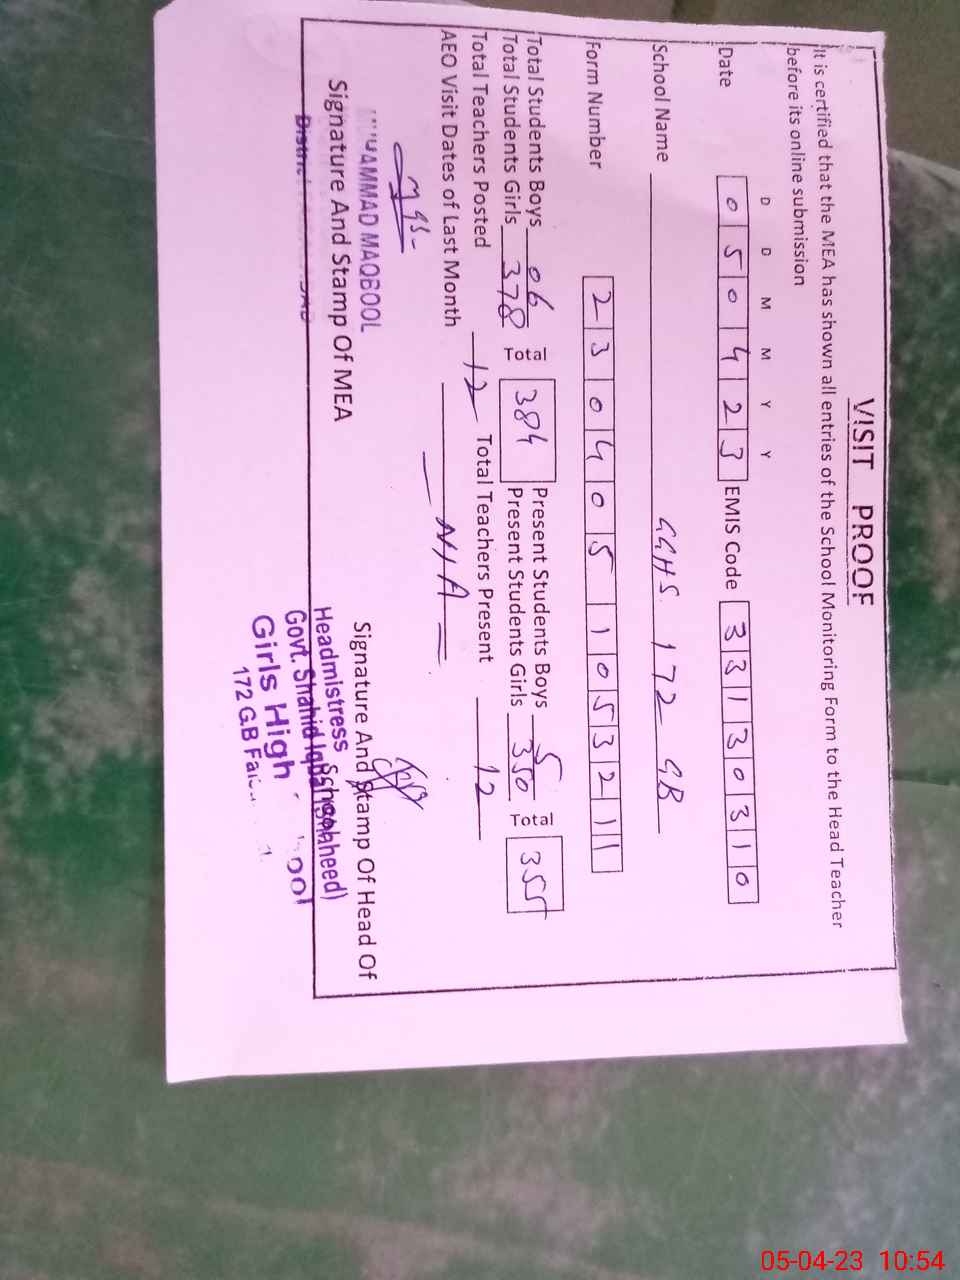 VISIT PROOF
It is certified that the MEA has shown all entries of the School Monitoring Form to the Head Teacher
before its online submission
D D M M Y Y
Date 0 5 0 4 2 3 EMIS Code 3 3 1 3 0 3 1 0
School Name GGHS 172 GB
Form Number 2 3 0 4 0 5 1 0 5 3 2 1 1
Total Students Boys 06 Total 384 Present Students Boys 5 Total 355
Total Students Girls 378 Present Students Girls 350
Total Teachers Posted 12 Total Teachers Present 12
AEO Visit Dates of Last Month N/A
MUHAMMAD MAQBOOL
Signature And Stamp Of MEA
District
Signature And Stamp Of Head Of
Headmistress
Govt. Shahid Iqbal
Girls High
172 G.B
05-04-23 10:54